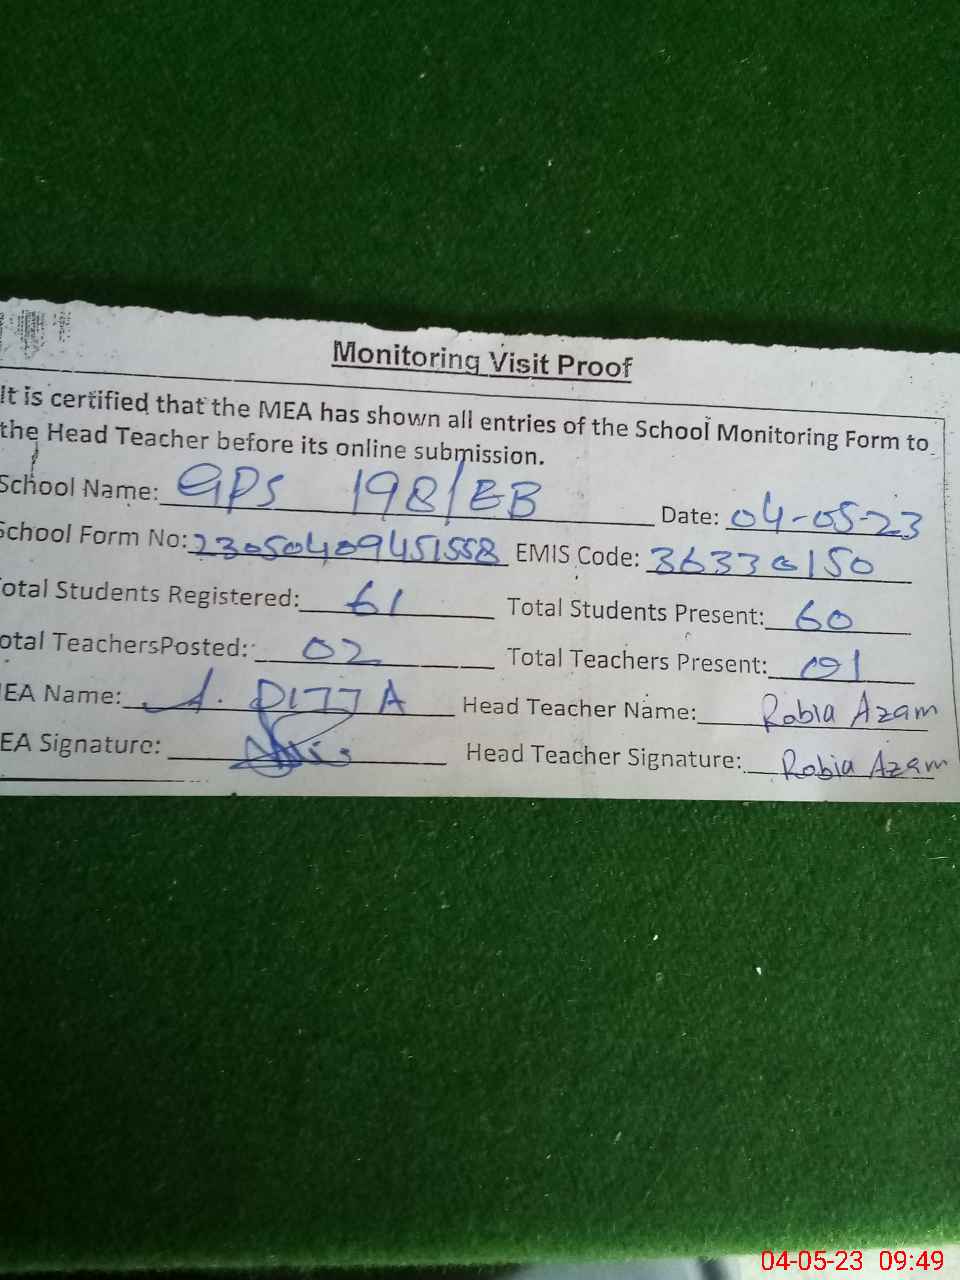 Monitoring Visit Proof
It is certified that the MEA has shown all entries of the School Monitoring Form to
the Head Teacher before its online submission.
School Name: GPS 198/EB Date: 04-05-23
School Form No: 23050409451558 EMIS Code: 36330150
otal Students Registered: 61 Total Students Present: 60
otal TeachersPosted: 02 Total Teachers Present: 01
EA Name: A. DITTA Head Teacher Name: Robia Azam
EA Signature: Head Teacher Signature: Robia Azam
04-05-23 09:49